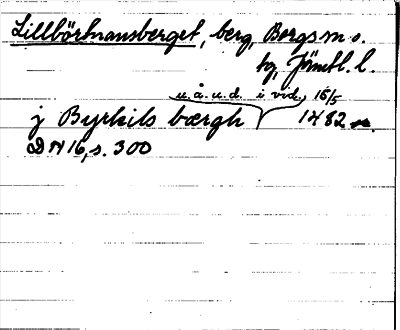 Lillbörtnansberget, berg, Bergs sn o.
hg, Jämtl. l.
u. å. u. d. i vid. 16/5
j Byrkils bærgh 1482 n.
DN 16, s. 300